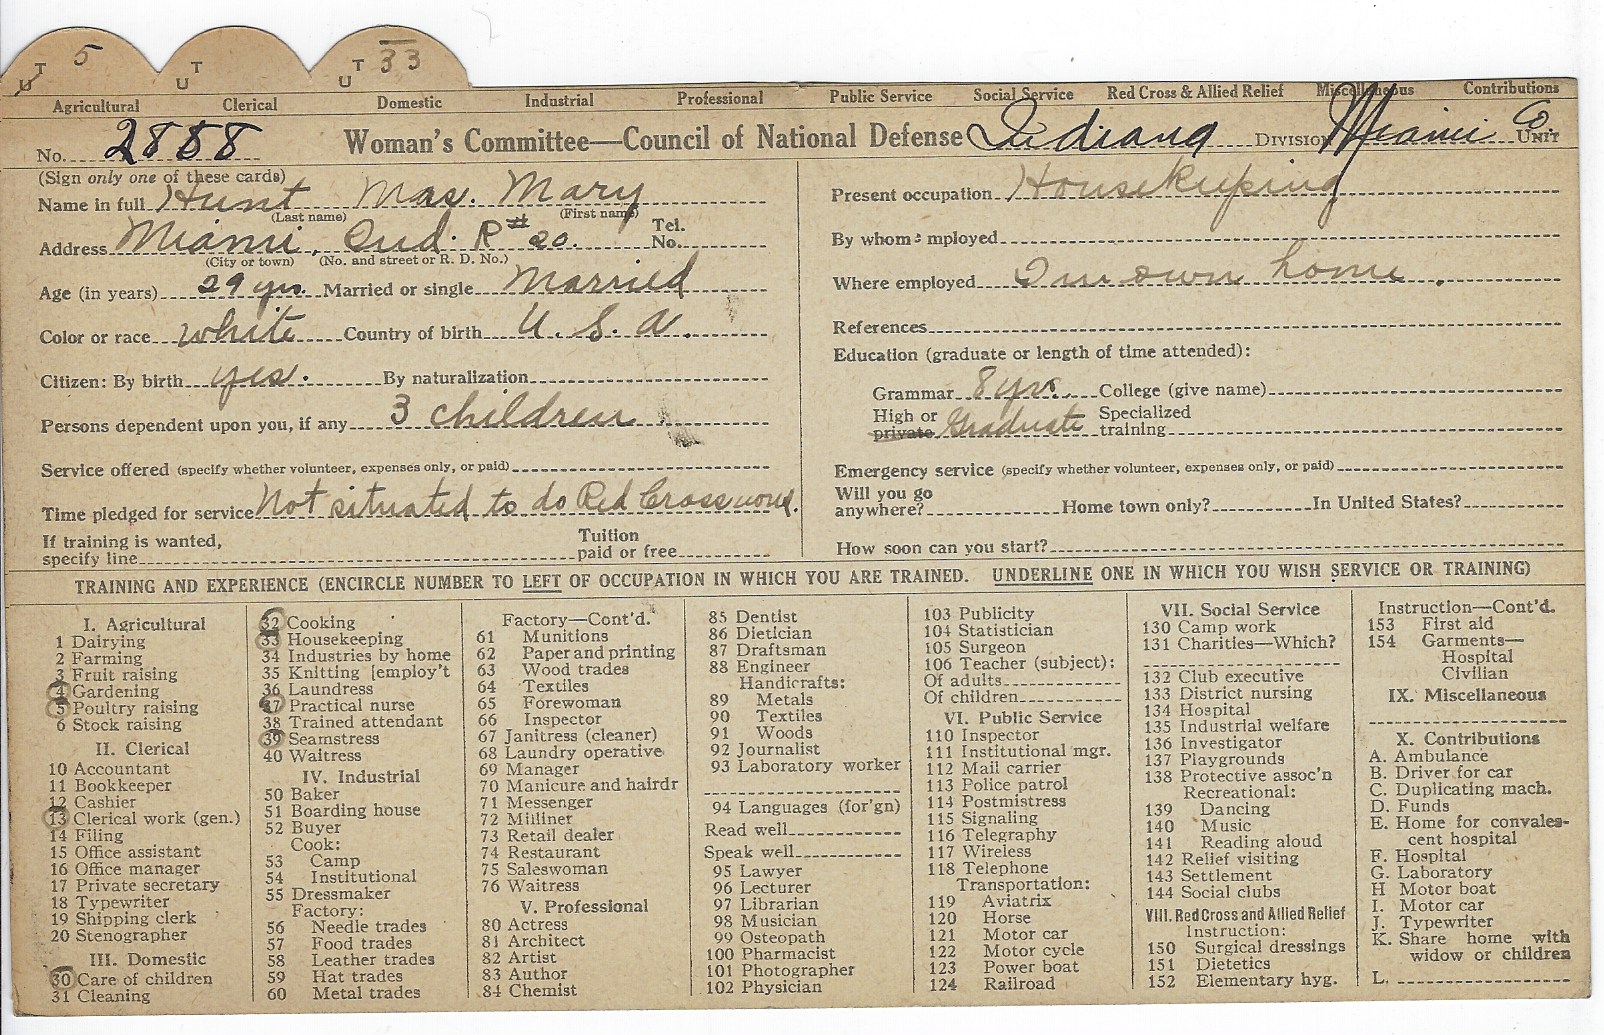 U T 5 U T U T 33
Agricultural Clerical Domestic Industrial Professional Public Service Social Service Red Cross & Allied Relief Miscellaneous Contributions
No. 2858 Woman's Committee—Council of National Defense Indiana Division Miami Co. Unit
(Sign only one of these cards)
Name in full Hunt Mrs. Mary
(Last name) (First name)
Address Miami, Ind. R# 20. Tel. No.
(City or town) (No. and street or R. D. No.)
Age (in years) 29 yrs. Married or single Married
Color or race white Country of birth U. S. A.
Citizen: By birth yes. By naturalization
Persons dependent upon you, if any 3 children
Service offered (specify whether volunteer, expenses only, or paid)
Time pledged for service Not situated to do Red Cross work.
If training is wanted, specify line Tuition paid or free
Present occupation Housekeeping
By whom employed
Where employed In own home.
References
Education (graduate or length of time attended):
Grammar 8 yrs. College (give name)
High or private Graduate Specialized training
Emergency service (specify whether volunteer, expenses only, or paid)
Will you go anywhere? Home town only? In United States?
How soon can you start?
TRAINING AND EXPERIENCE (ENCIRCLE NUMBER TO LEFT OF OCCUPATION IN WHICH YOU ARE TRAINED. UNDERLINE ONE IN WHICH YOU WISH SERVICE OR TRAINING)
I. Agricultural
1 Dairying
2 Farming
3 Fruit raising
4 Gardening
5 Poultry raising
6 Stock raising
II. Clerical
10 Accountant
11 Bookkeeper
12 Cashier
13 Clerical work (gen.)
14 Filing
15 Office assistant
16 Office manager
17 Private secretary
18 Typewriter
19 Shipping clerk
20 Stenographer
III. Domestic
30 Care of children
31 Cleaning
32 Cooking
33 Housekeeping
34 Industries by home
35 Knitting [employ't
36 Laundress
37 Practical nurse
38 Trained attendant
39 Seamstress
40 Waitress
IV. Industrial
50 Baker
51 Boarding house
52 Buyer
Cook:
53 Camp
54 Institutional
55 Dressmaker
Factory:
56 Needle trades
57 Food trades
58 Leather trades
59 Hat trades
60 Metal trades
Factory—Cont'd.
61 Munitions
62 Paper and printing
63 Wood trades
64 Textiles
65 Forewoman
66 Inspector
67 Janitress (cleaner)
68 Laundry operative
69 Manager
70 Manicure and hairdr
71 Messenger
72 Milliner
73 Retail dealer
74 Restaurant
75 Saleswoman
76 Waitress
V. Professional
80 Actress
81 Architect
82 Artist
83 Author
84 Chemist
85 Dentist
86 Dietician
87 Draftsman
88 Engineer
Handicrafts:
89 Metals
90 Textiles
91 Woods
92 Journalist
93 Laboratory worker
94 Languages (for'gn)
Read well
Speak well
95 Lawyer
96 Lecturer
97 Librarian
98 Musician
99 Osteopath
100 Pharmacist
101 Photographer
102 Physician
103 Publicity
104 Statistician
105 Surgeon
106 Teacher (subject):
Of adults
Of children
VI. Public Service
110 Inspector
111 Institutional mgr.
112 Mail carrier
113 Police patrol
114 Postmistress
115 Signaling
116 Telegraphy
117 Wireless
118 Telephone
Transportation:
119 Aviatrix
120 Horse
121 Motor car
122 Motor cycle
123 Power boat
124 Railroad
VII. Social Service
130 Camp work
131 Charities—Which?
132 Club executive
133 District nursing
134 Hospital
135 Industrial welfare
136 Investigator
137 Playgrounds
138 Protective assoc'n
Recreational:
139 Dancing
140 Music
141 Reading aloud
142 Relief visiting
143 Settlement
144 Social clubs
VIII. Red Cross and Allied Relief
Instruction:
150 Surgical dressings
151 Dietetics
152 Elementary hyg.
Instruction—Cont'd.
153 First aid
154 Garments—
Hospital
Civilian
IX. Miscellaneous
X. Contributions
A. Ambulance
B. Driver for car
C. Duplicating mach.
D. Funds
E. Home for convales-
cent hospital
F. Hospital
G. Laboratory
H Motor boat
I. Motor car
J. Typewriter
K. Share home with
widow or children
L.